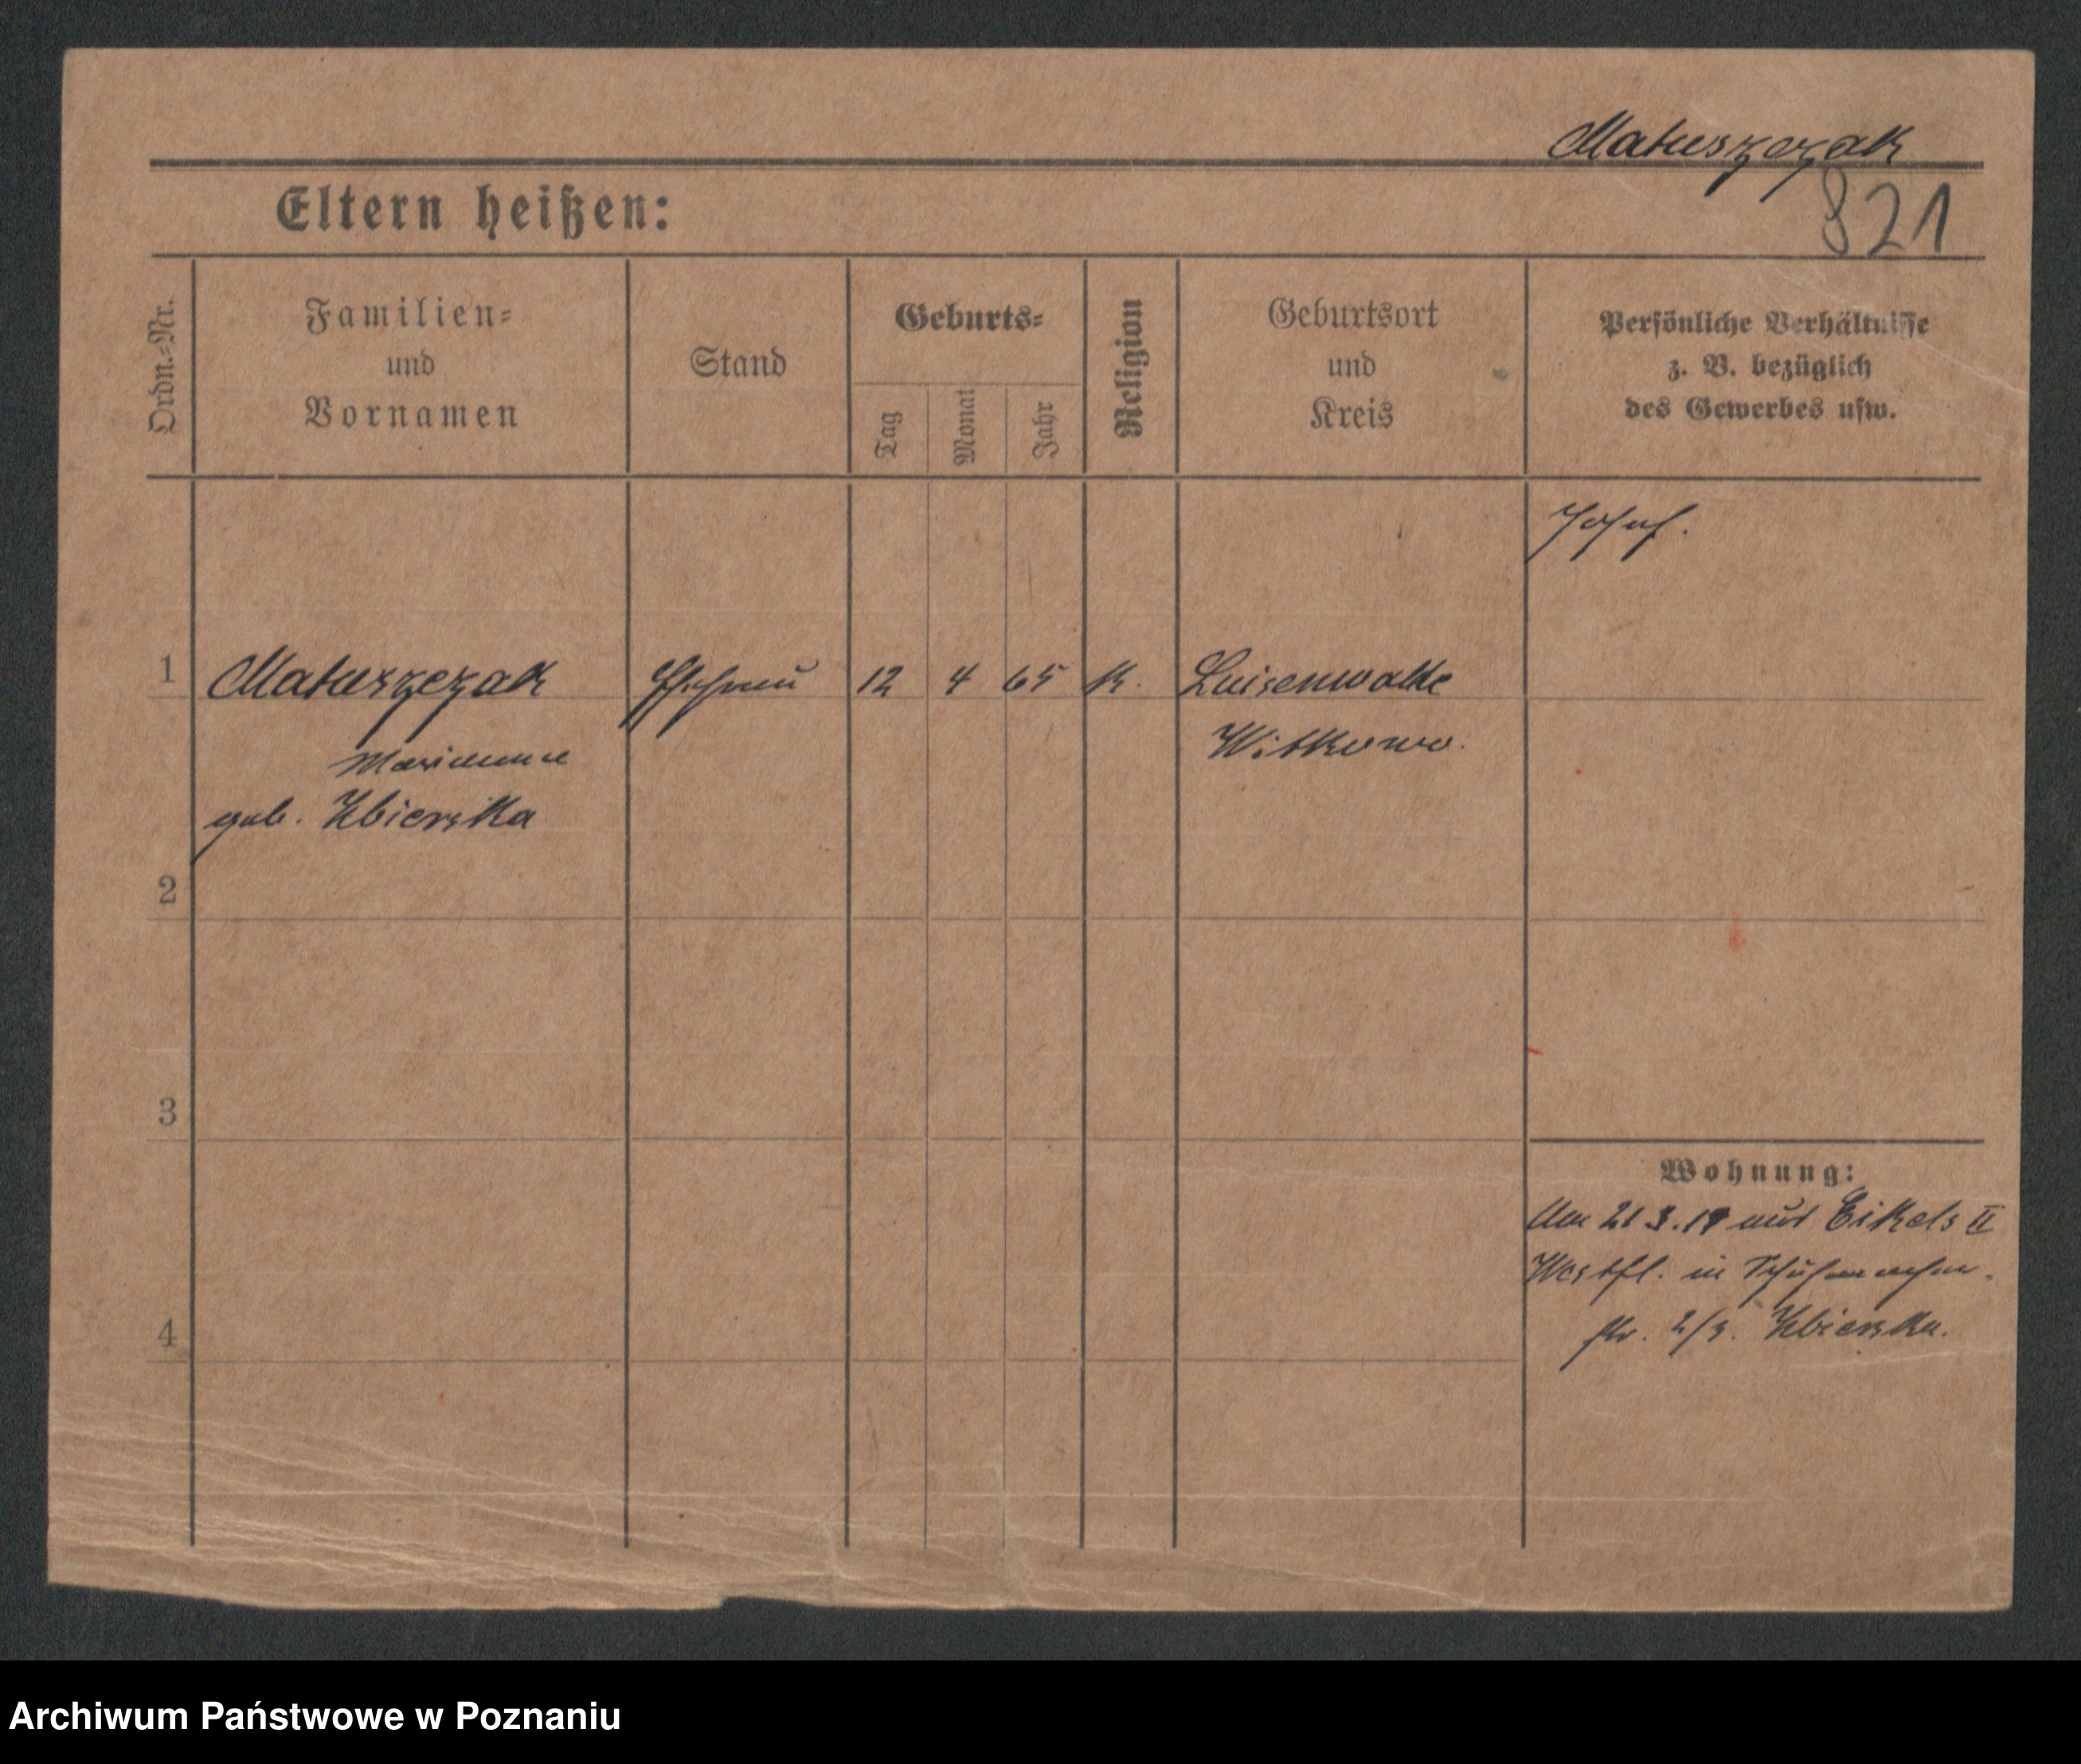 Matuszczak
821
Eltern heißen:
Ordn.=Nr.
Familien=
und
Vornamen
Stand
Geburts=
Tag
Monat
Jahr
Religion
Geburtsort
und
Kreis
Persönliche Verhältnisse
z. B. bezüglich
des Gewerbes usw.
Josef.
1 Matuszczak Ehefrau 12 4 65 K. Luisenwalde
Marianna Witkowo.
geb. Zbierska
2
3
4
Wohnung:
Am 21 3.19 aus Eikels II
Westfl. in
str. 2/3. Zbierska.
Archiwum Państwowe w Poznaniu